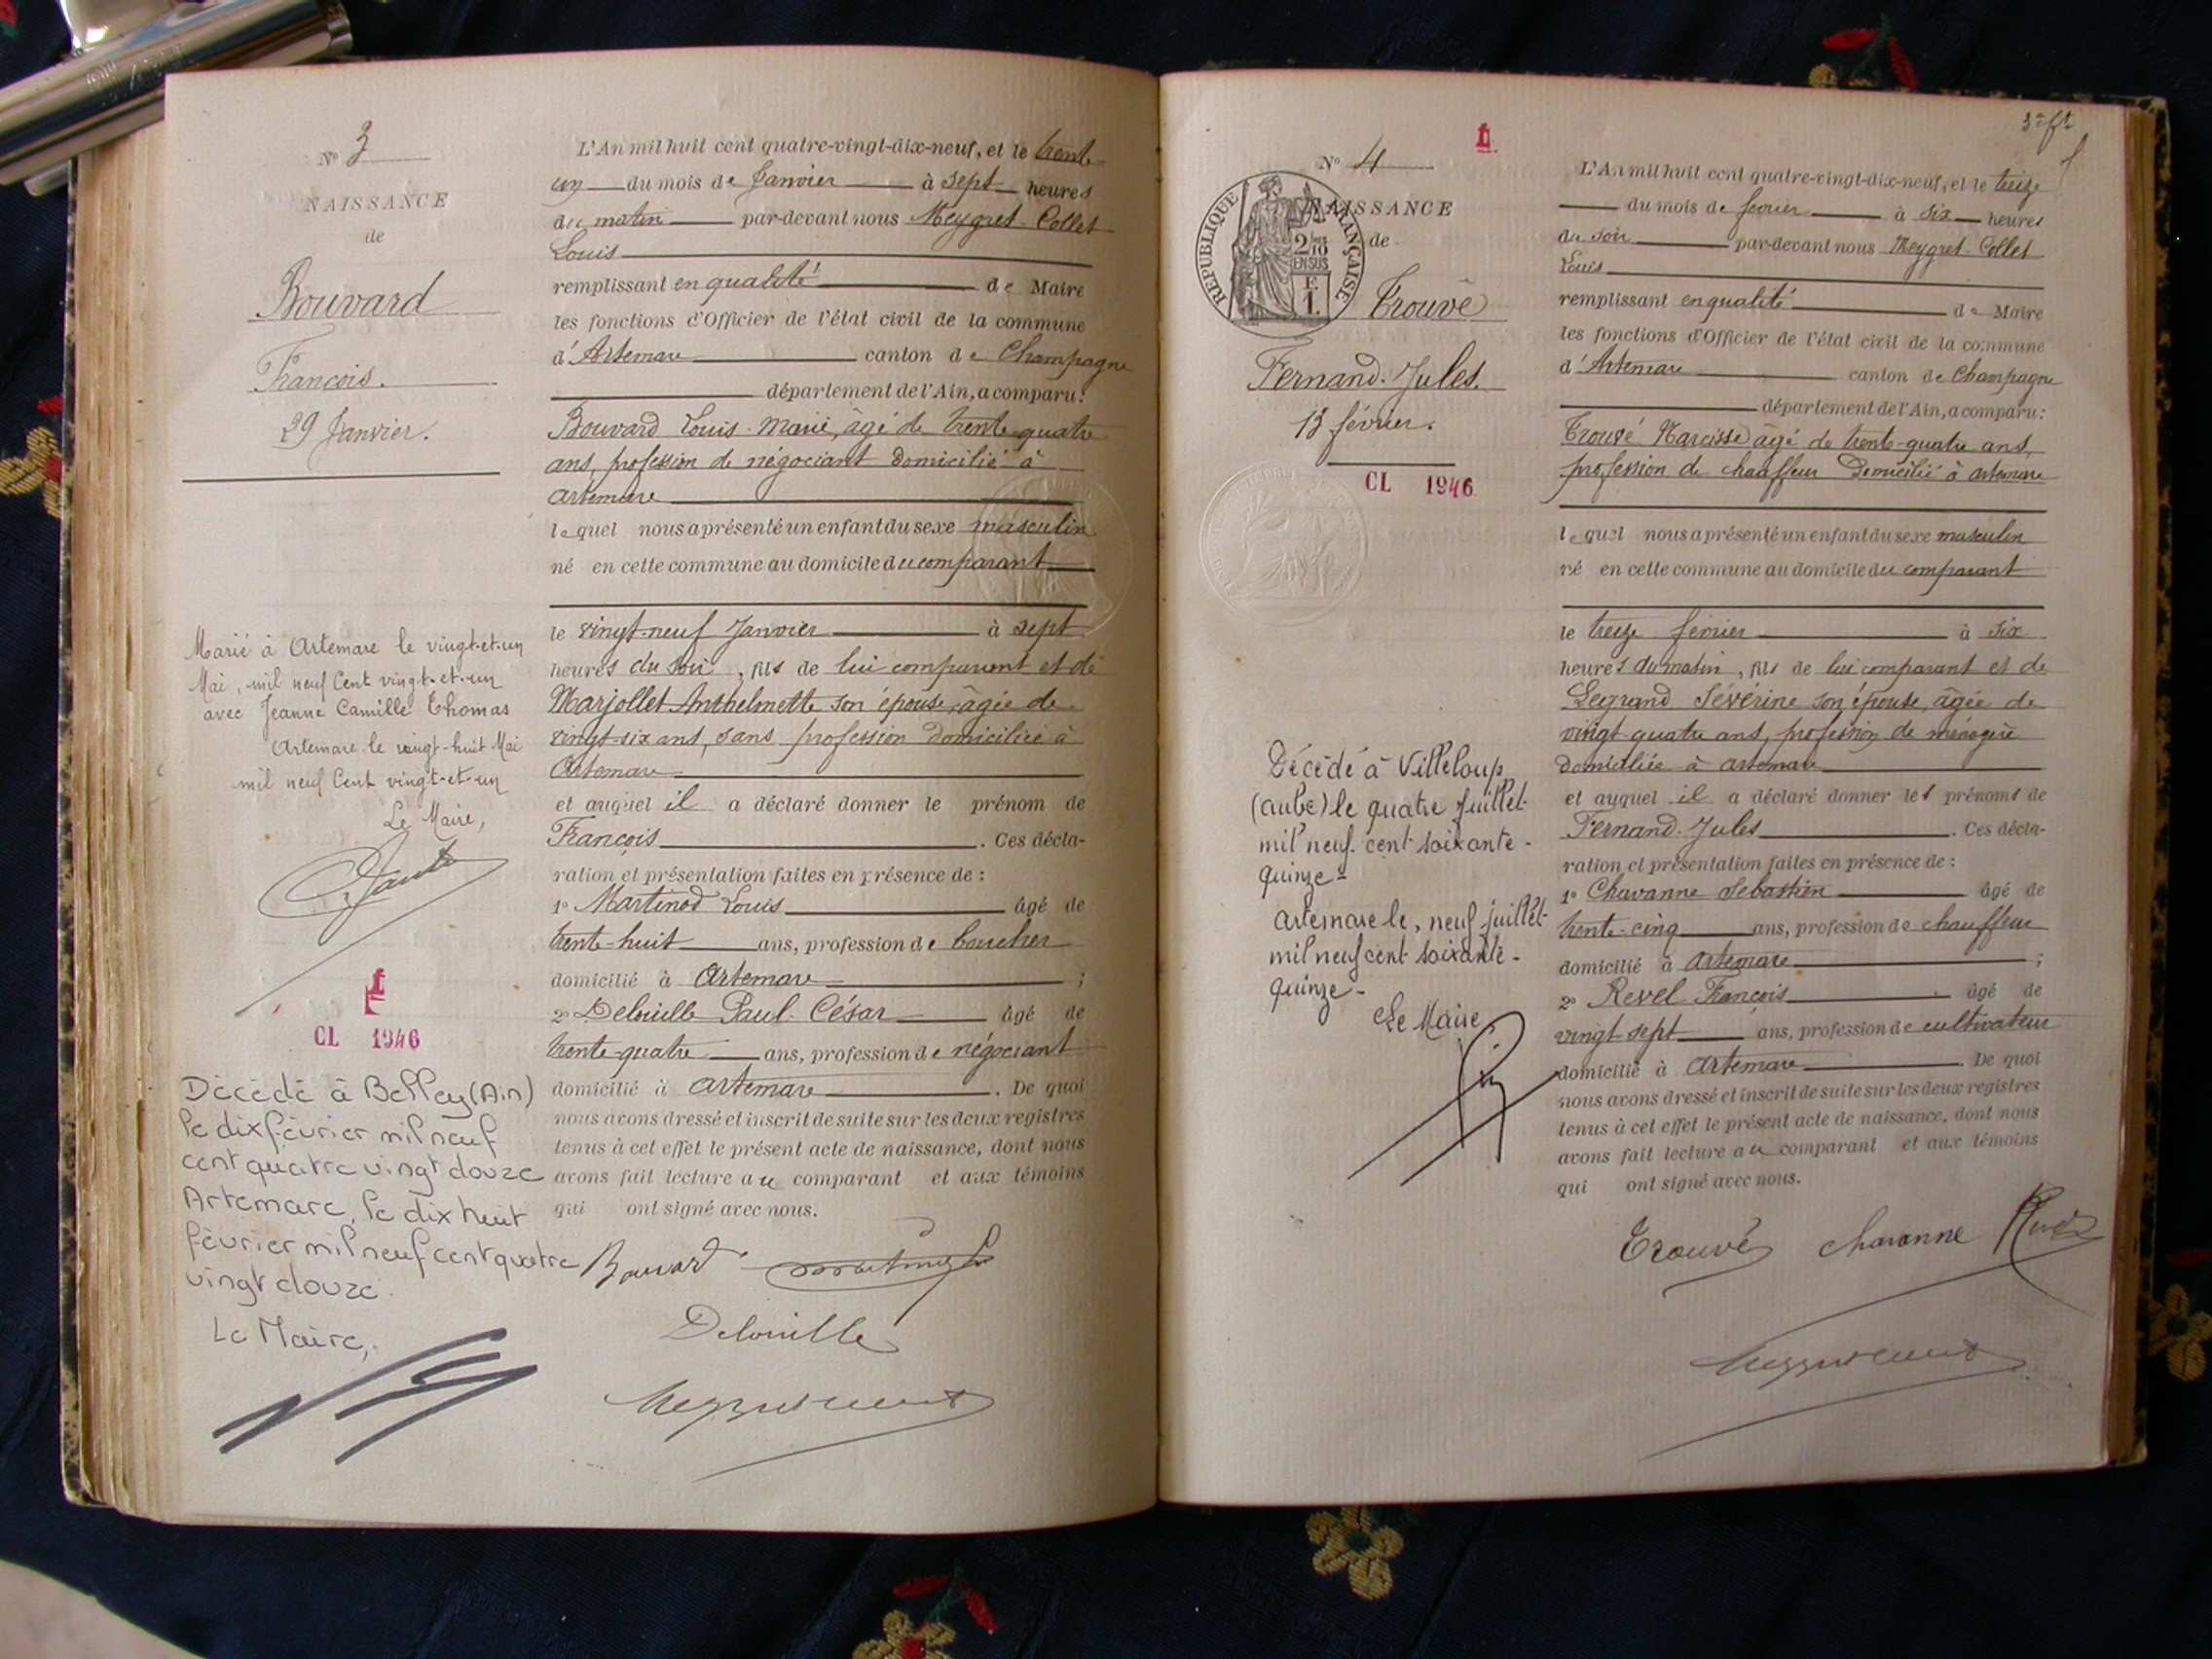 N° 3
NAISSANCE
de
Bouvard
François.
29 Janvier.
Marié à Artemare le vingt-et-un
Mai, mil neuf Cent vingt-et-un
avec Jeanne Camille Thomas
Artemare le vingt-huit Mai
mil neuf Cent vingt-et-un
Le Maire,
CL 1946
Décédé à Belley (Ain)
le dix février mil neuf
cent quatre vingt douze
Artemare, le dix huit
février mil neuf cent quatre
vingt douze.
Le Maire,
L'An mil huit cent quatre-vingt-dix-neuf, et le trente
un du mois de Janvier à sept heures
du matin par-devant nous Meygret-Collet
Louis
remplissant en qualité de Maire
les fonctions d'Officier de l'état civil de la commune
d'Artemare canton de Champagne
département de l'Ain, a comparu:
Bouvard Louis-Marie, âgé de trente-quatre
ans, profession de négociant domicilié à
Artemare
lequel nous a présenté un enfant du sexe masculin
né en cette commune au domicile du comparant
le vingt-neuf Janvier à sept
heures du soir, fils de lui comparant et de
Marjollet Anthelmette son épouse, âgée de
vingt-six ans, sans profession domiciliée à
Artemare
et auquel il a déclaré donner le prénom de
François. Ces décla-
ration et présentation faites en présence de :
1° Martinod Louis âgé de
trente-huit ans, profession de boucher
domicilié à Artemare ;
2° Delouille Paul-César âgé de
trente-quatre ans, profession de négociant
domicilié à Artemare. De quoi
nous avons dressé et inscrit de suite sur les deux registres
tenus à cet effet le présent acte de naissance, dont nous
avons fait lecture au comparant et aux témoins
qui ont signé avec nous.
Bouvard
Delouille
N° 4
NAISSANCE
de
RÉPUBLIQUE FRANÇAISE
2/10
EN SUS
F.
1.
Trouvé
Fernand-Jules.
13 février.
CL 1946
Décédé à Villeloup
(aube) le quatre Juillet
mil neuf cent soixante-
quinze-
artemare le, neuf juillet
mil neuf cent soixante-
quinze-
Le Maire
L'An mil huit cent quatre-vingt-dix-neuf, et le treize
du mois de février à six heures
du soir par-devant nous Meygret-Collet
Louis
remplissant en qualité de Maire
les fonctions d'Officier de l'état civil de la commune
d'Artemare canton de Champagne
département de l'Ain, a comparu:
Trouvé Narcisse âgé de trente-quatre ans,
profession de chauffeur Domicilié à artemare
lequel nous a présenté un enfant du sexe masculin
né en cette commune au domicile du comparant
le treize février à six
heures du matin, fils de lui comparant et de
Legrand Sévérine son épouse, âgée de
vingt-quatre ans, profession de ménagère
domiciliée à artemare
et auquel il a déclaré donner les prénoms de
Fernand-Jules. Ces décla-
ration et présentation faites en présence de :
1° Chavanne Sébastien âgé de
trente-cinq ans, profession de chauffeur
domicilié à Artemare ;
2° Revel François âgé de
vingt sept ans, profession de cultivateur
domicilié à Artemare. De quoi
nous avons dressé et inscrit de suite sur les deux registres
tenus à cet effet le présent acte de naissance, dont nous
avons fait lecture au comparant et aux témoins
qui ont signé avec nous.
Trouvé Chavanne Revel